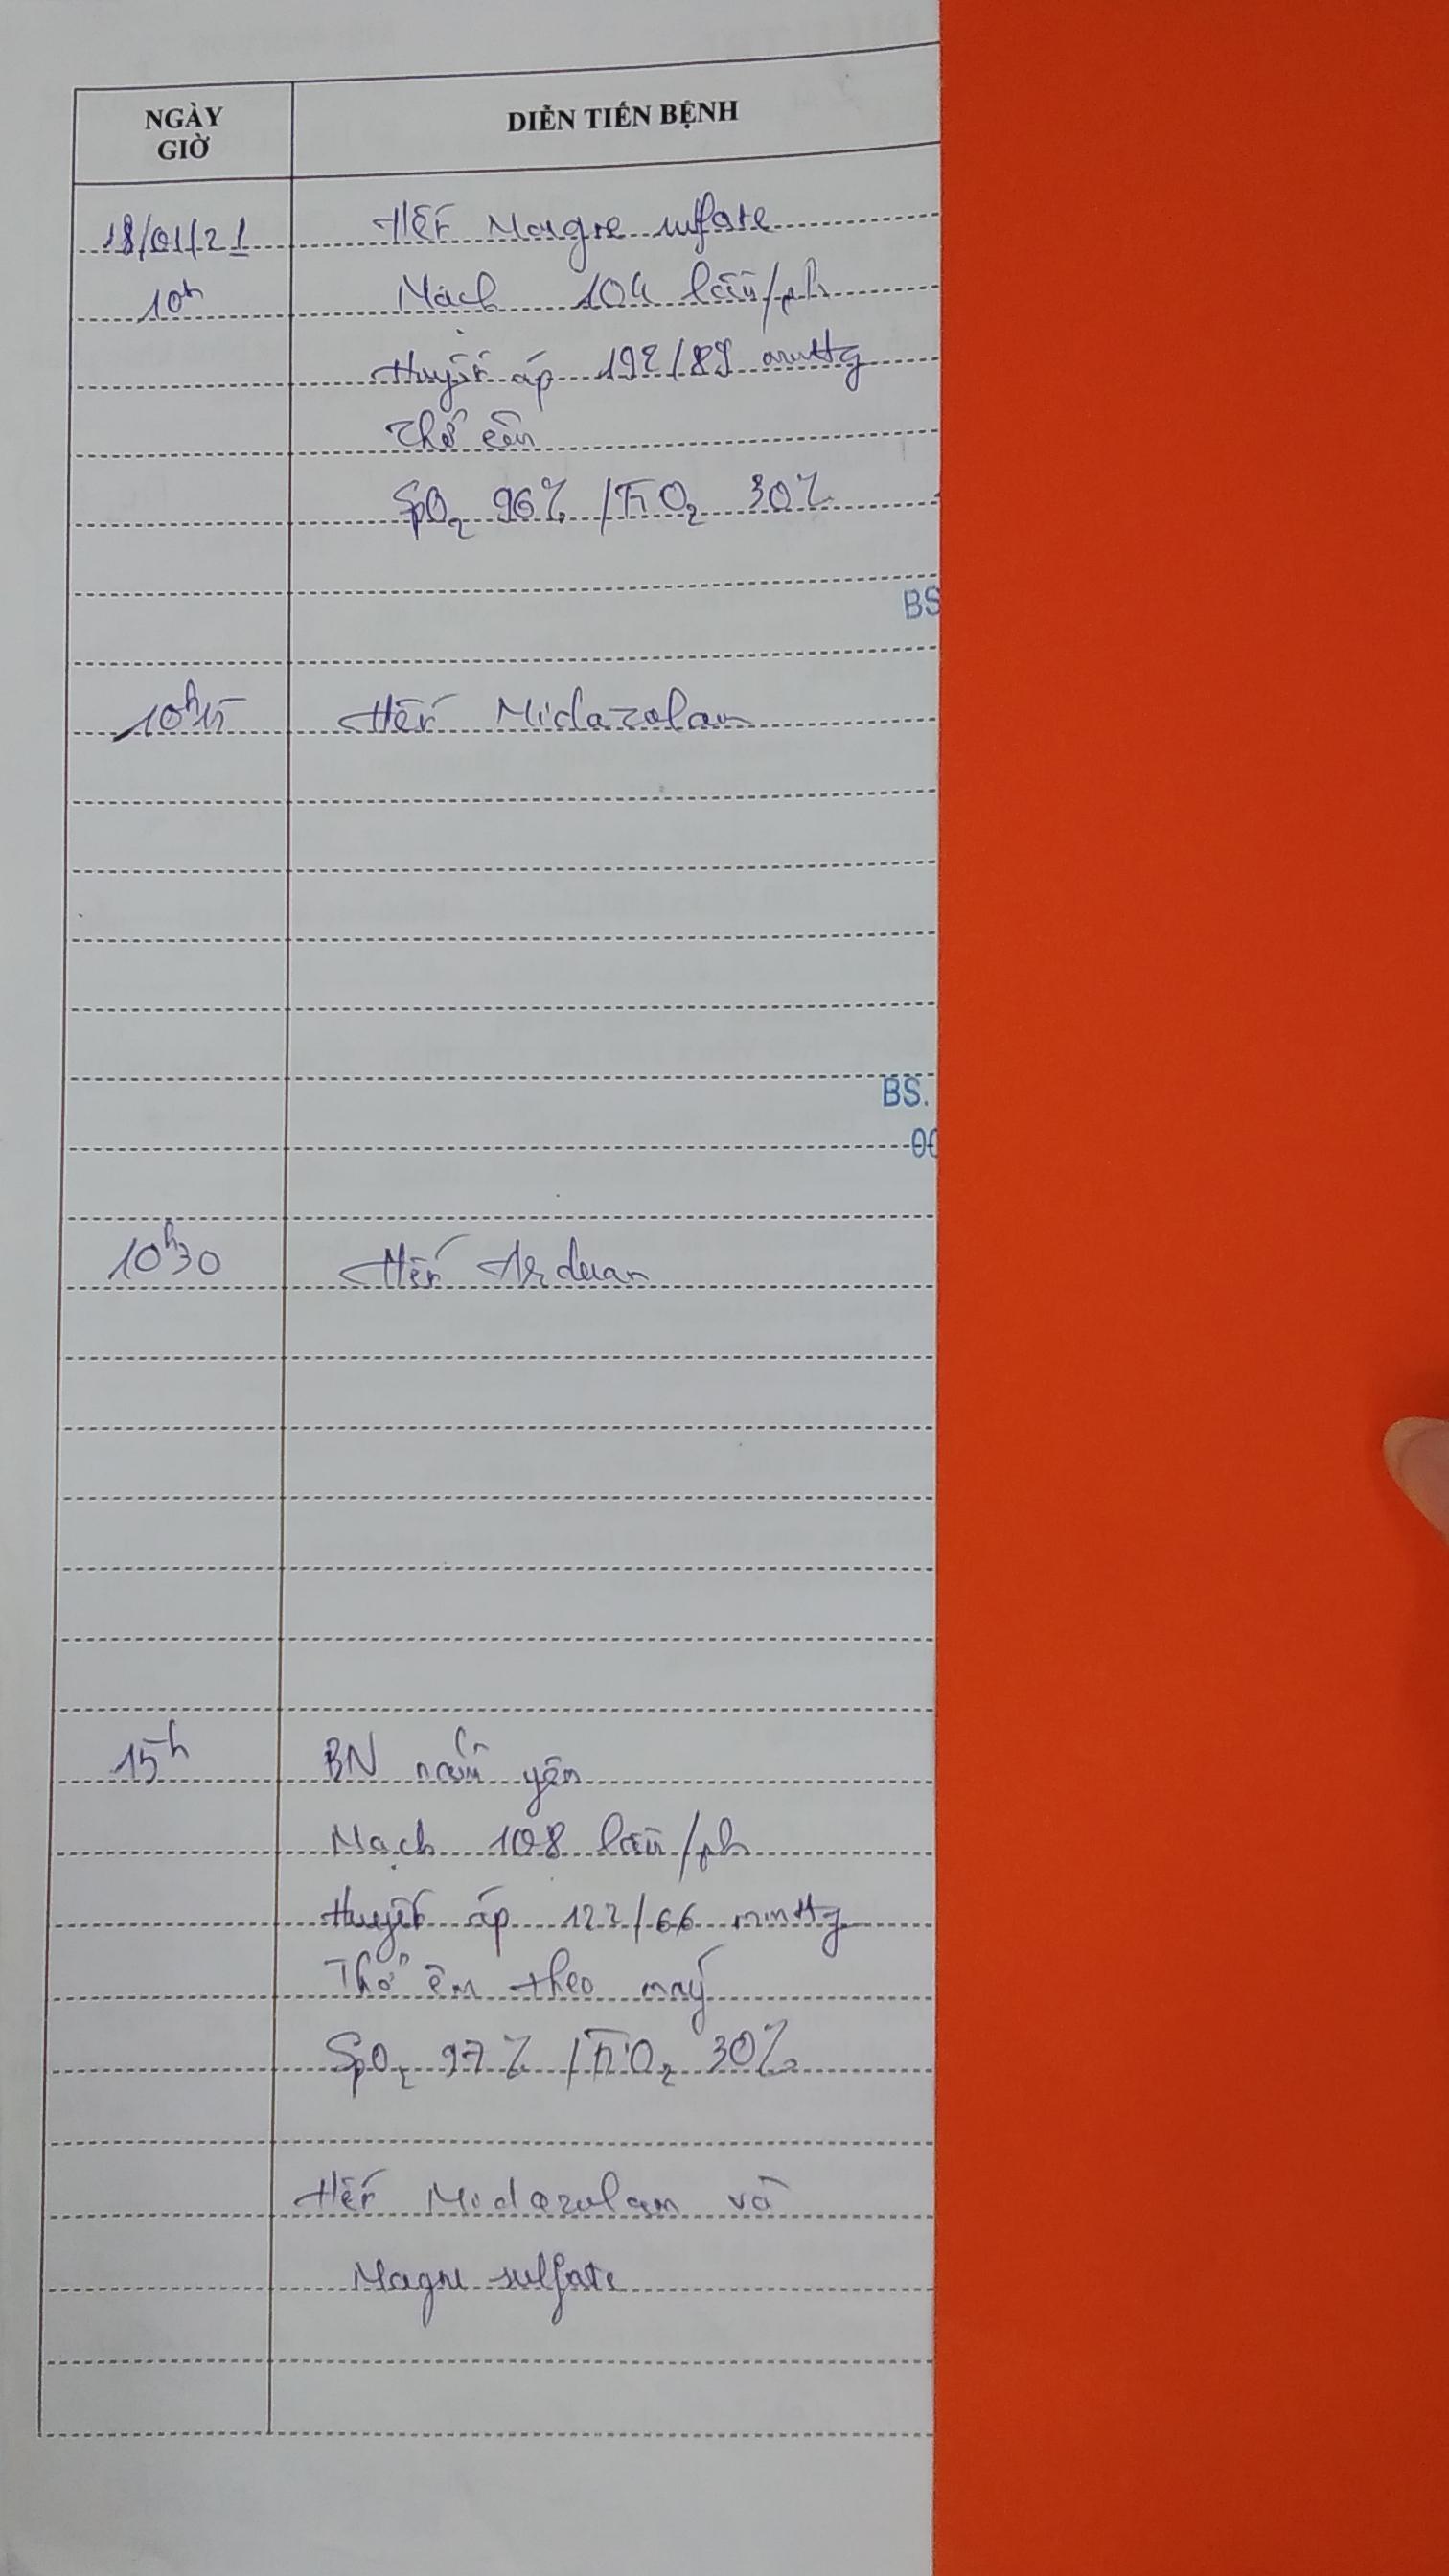 NGÀY GIỜ
DIỄN TIẾN BỆNH
18/01/21 Hết Magne sulfate
10h Mạch 104 lần/ph
Huyết áp 192/89 mmHg
Thở êm
SpO2 96% /FiO2 30%
BS
10h15 Hết Midazolam
BS.
00
10h30 Hết Arduan
15h BN nằm yên
Mạch 108 lần/ph
Huyết áp 122/66 mmHg
Thở êm theo máy
SpO2 97% /FiO2 30%
Hết Midazolam và
Magne sulfate